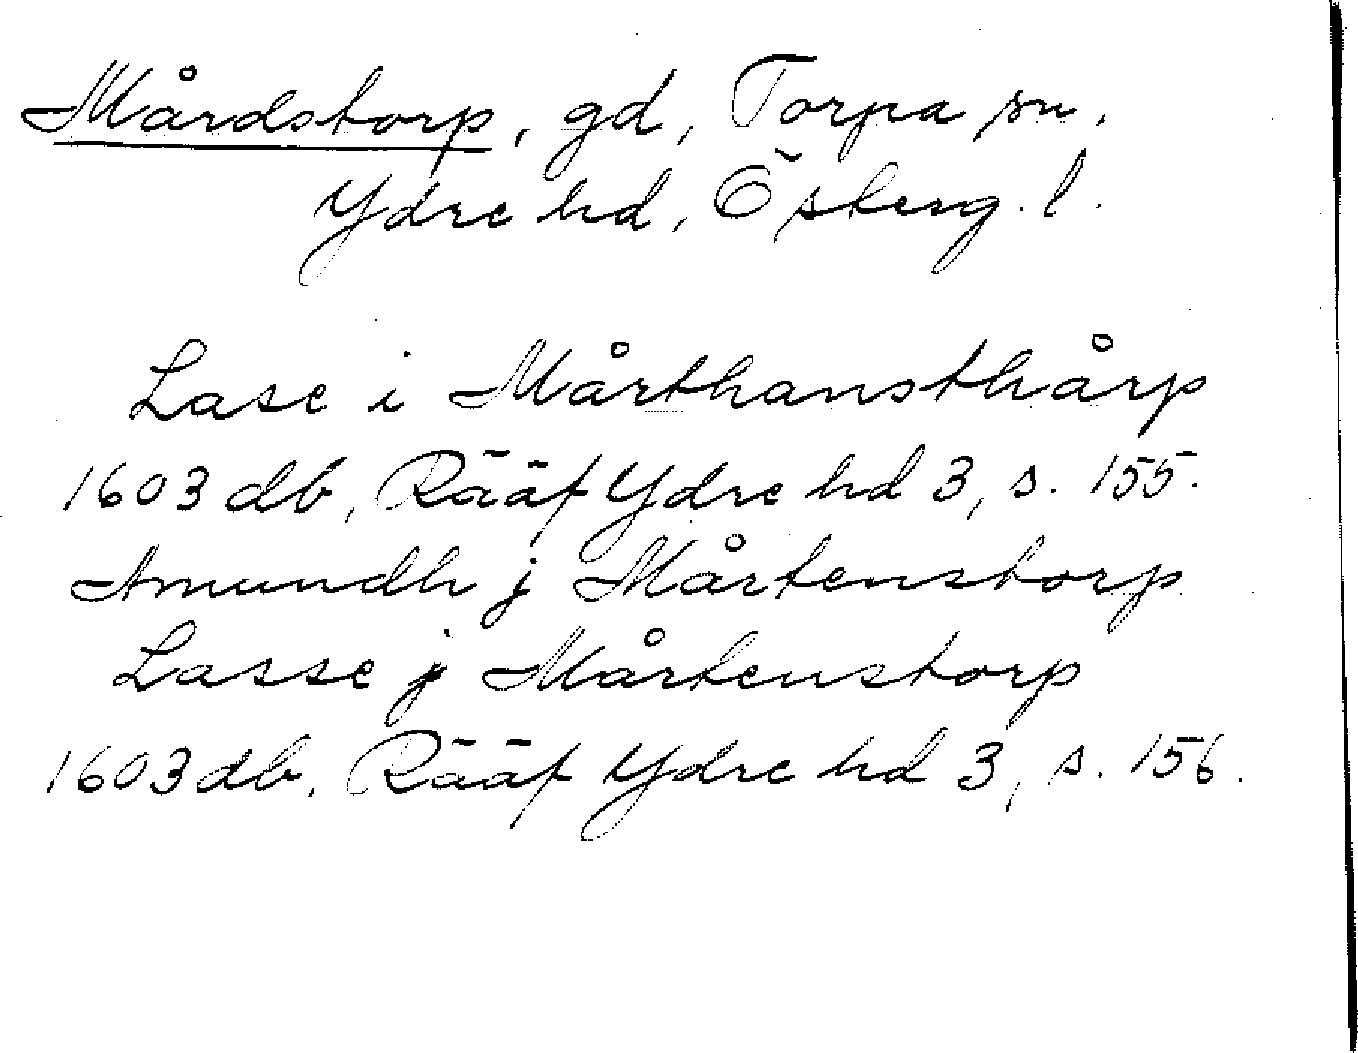 Mårdstorp, gd, Torpa sn,
Ydre hd, Österg. l.
Lase i Mårthansthårp
1603 db, Rääf Ydre hd 3, s. 155.
Amundh j Mårtenstorp
Lasse j Mårtenstorp
1603 db, Rääf Ydre hd 3, s. 156.